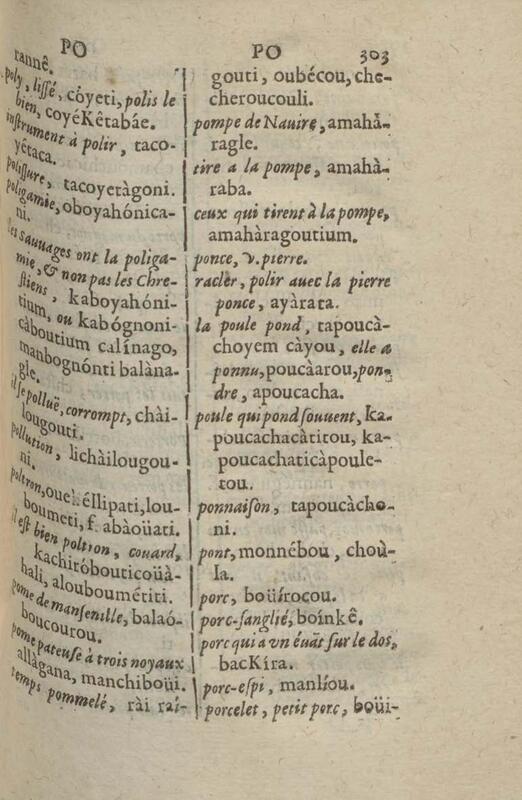 PO
rannê.
poly, lissé, cóyeti, polis le
bien, coyéKêtabáe.
instrument à polir, taco-
yêtaca.
polissure, tacoyetàgoni.
poligamie, oboyahónica-
ni.
les sauuages ont la poliga-
mie, & non pas les Chre-
stiens, kaboyahóni-
tium, ou kabógnoni-
càboutium calínago,
manbognónti balàna-
gle.
il se polluë, corrompt, chài-
lougouti.
pollution, lichàilougou-
ni.
poltron, éllipati, lou-
boumeti, f. abàoüati.
il est bien poltron, couard,
kachiróbouticoüà-
hali, alouboumétiti.
pome de mansenille, balaó-
boucourou.
pome pateuse à trois noyaux
allàgana, manchiboüi.
temps pommelé, rài raí-
PO 303
gouti, oubécou, che-
cheroucouli.
pompe de Nauire, amahà-
ragle.
tire a la pompe, amahà-
raba.
ceux qui tirent à la pompe,
amahàragoutium.
ponce, v. pierre.
racler, polir auec la pierre
ponce, ayàrata.
la poule pond, tapoucà-
choyem càyou, elle a
ponnu, poucàarou, pon-
dre, apoucacha.
poule qui pond souuent, ka-
poucachacàtitou, ka-
poucachaticàpoule-
tou.
ponnaison, tapoucàcho-
ni.
pont, monnébou, choù-
la.
porc, boüirocou.
porc-sanglié, boínkê.
porc qui a vn éuãt sur le dos,
bacKíra.
porc-espi, manlíou.
porcelet, petit porc, boüi-